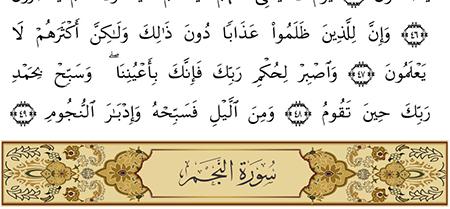 ﴿٤٦﴾ وَإِنَّ لِلَّذِينَ ظَلَمُوا۟ عَذَابًا دُونَ ذَٰلِكَ وَلَٰكِنَّ أَكْثَرَهُمْ لَا
يَعْلَمُونَ ﴿٤٧﴾ وَٱصْبِرْ لِحُكْمِ رَبِّكَ فَإِنَّكَ بِأَعْيُنِنَا ۖ وَسَبِّحْ بِحَمْدِ
رَبِّكَ حِينَ تَقُومُ ﴿٤٨﴾ وَمِنَ ٱلَّيْلِ فَسَبِّحْهُ وَإِدْبَٰرَ ٱلنُّجُومِ ﴿٤٩﴾
سُورَةُ النَّجْمِ